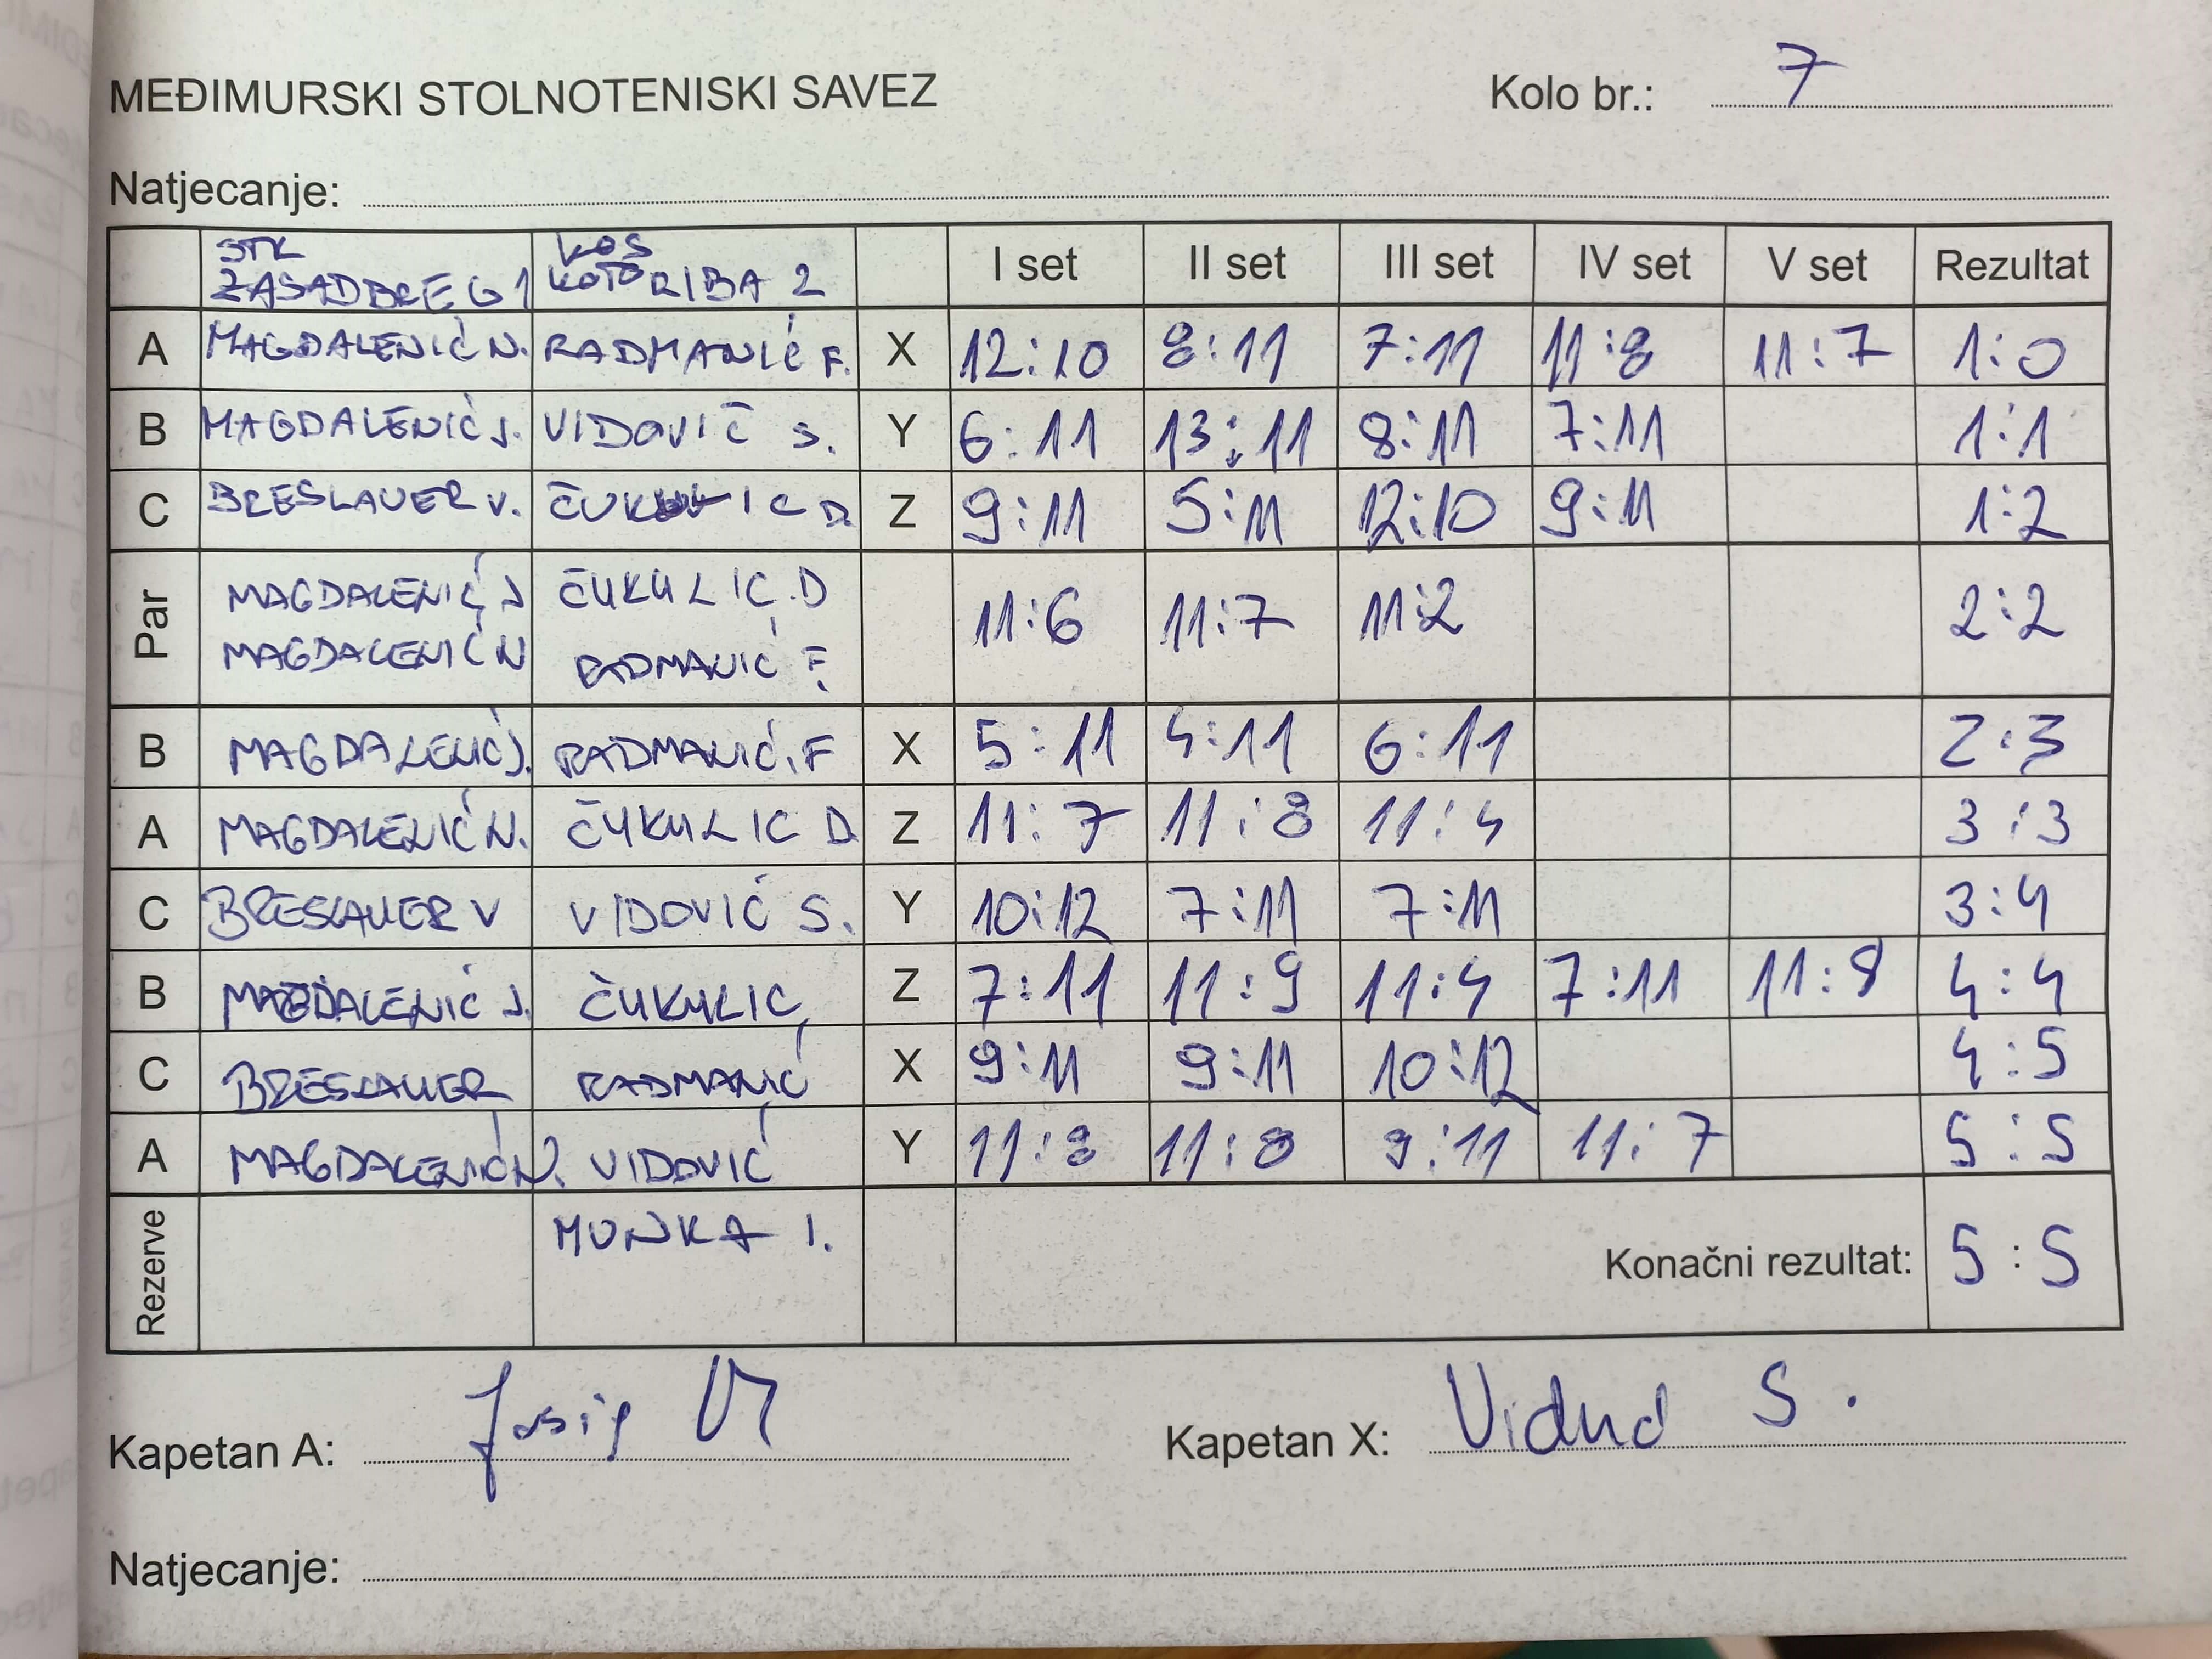 MEĐIMURSKI STOLNOTENISKI SAVEZ Kolo br.: 7
Natjecanje:
STK ZASADBREG 1 KOTORIBA 2 I set II set III set IV set V set Rezultat
A MAGDALENIĆ N. RADMANIĆ F. X 12:10 8:11 7:11 11:8 11:7 1:0
B MAGDALENIĆ J. VIDOVIĆ S. Y 6:11 13:11 8:11 7:11 1:1
C BRESLAUER V. D. Z 9:11 5:11 12:10 9:11 1:2
Par MAGDALENIĆ J ČUKULIĆ.D 11:6 11:7 11:2 2:2
MAGDALENIĆ N RADMANIĆ F.
B MAGDALENIĆ J. RADMANIĆ.F X 5:11 4:11 6:11 2:3
A MAGDALENIĆ N. ČUKULIC D. Z 11:7 11:8 11:4 3:3
C BRESLAUER V VIDOVIĆ S. Y 10:12 7:11 7:11 3:4
B MAGDALENIĆ J. ČUKULIC Z 7:11 11:9 11:4 7:11 11:8 4:4
C BRESLAUER RADMANIĆ X 9:11 9:11 10:12 4:5
A MAGDALENIĆ N. VIDOVIĆ Y 11:8 11:8 9:11 11:7 5:5
Rezerve MUNKA I. Konačni rezultat: 5:5
Kapetan A: Josip Kapetan X: S.
Natjecanje: